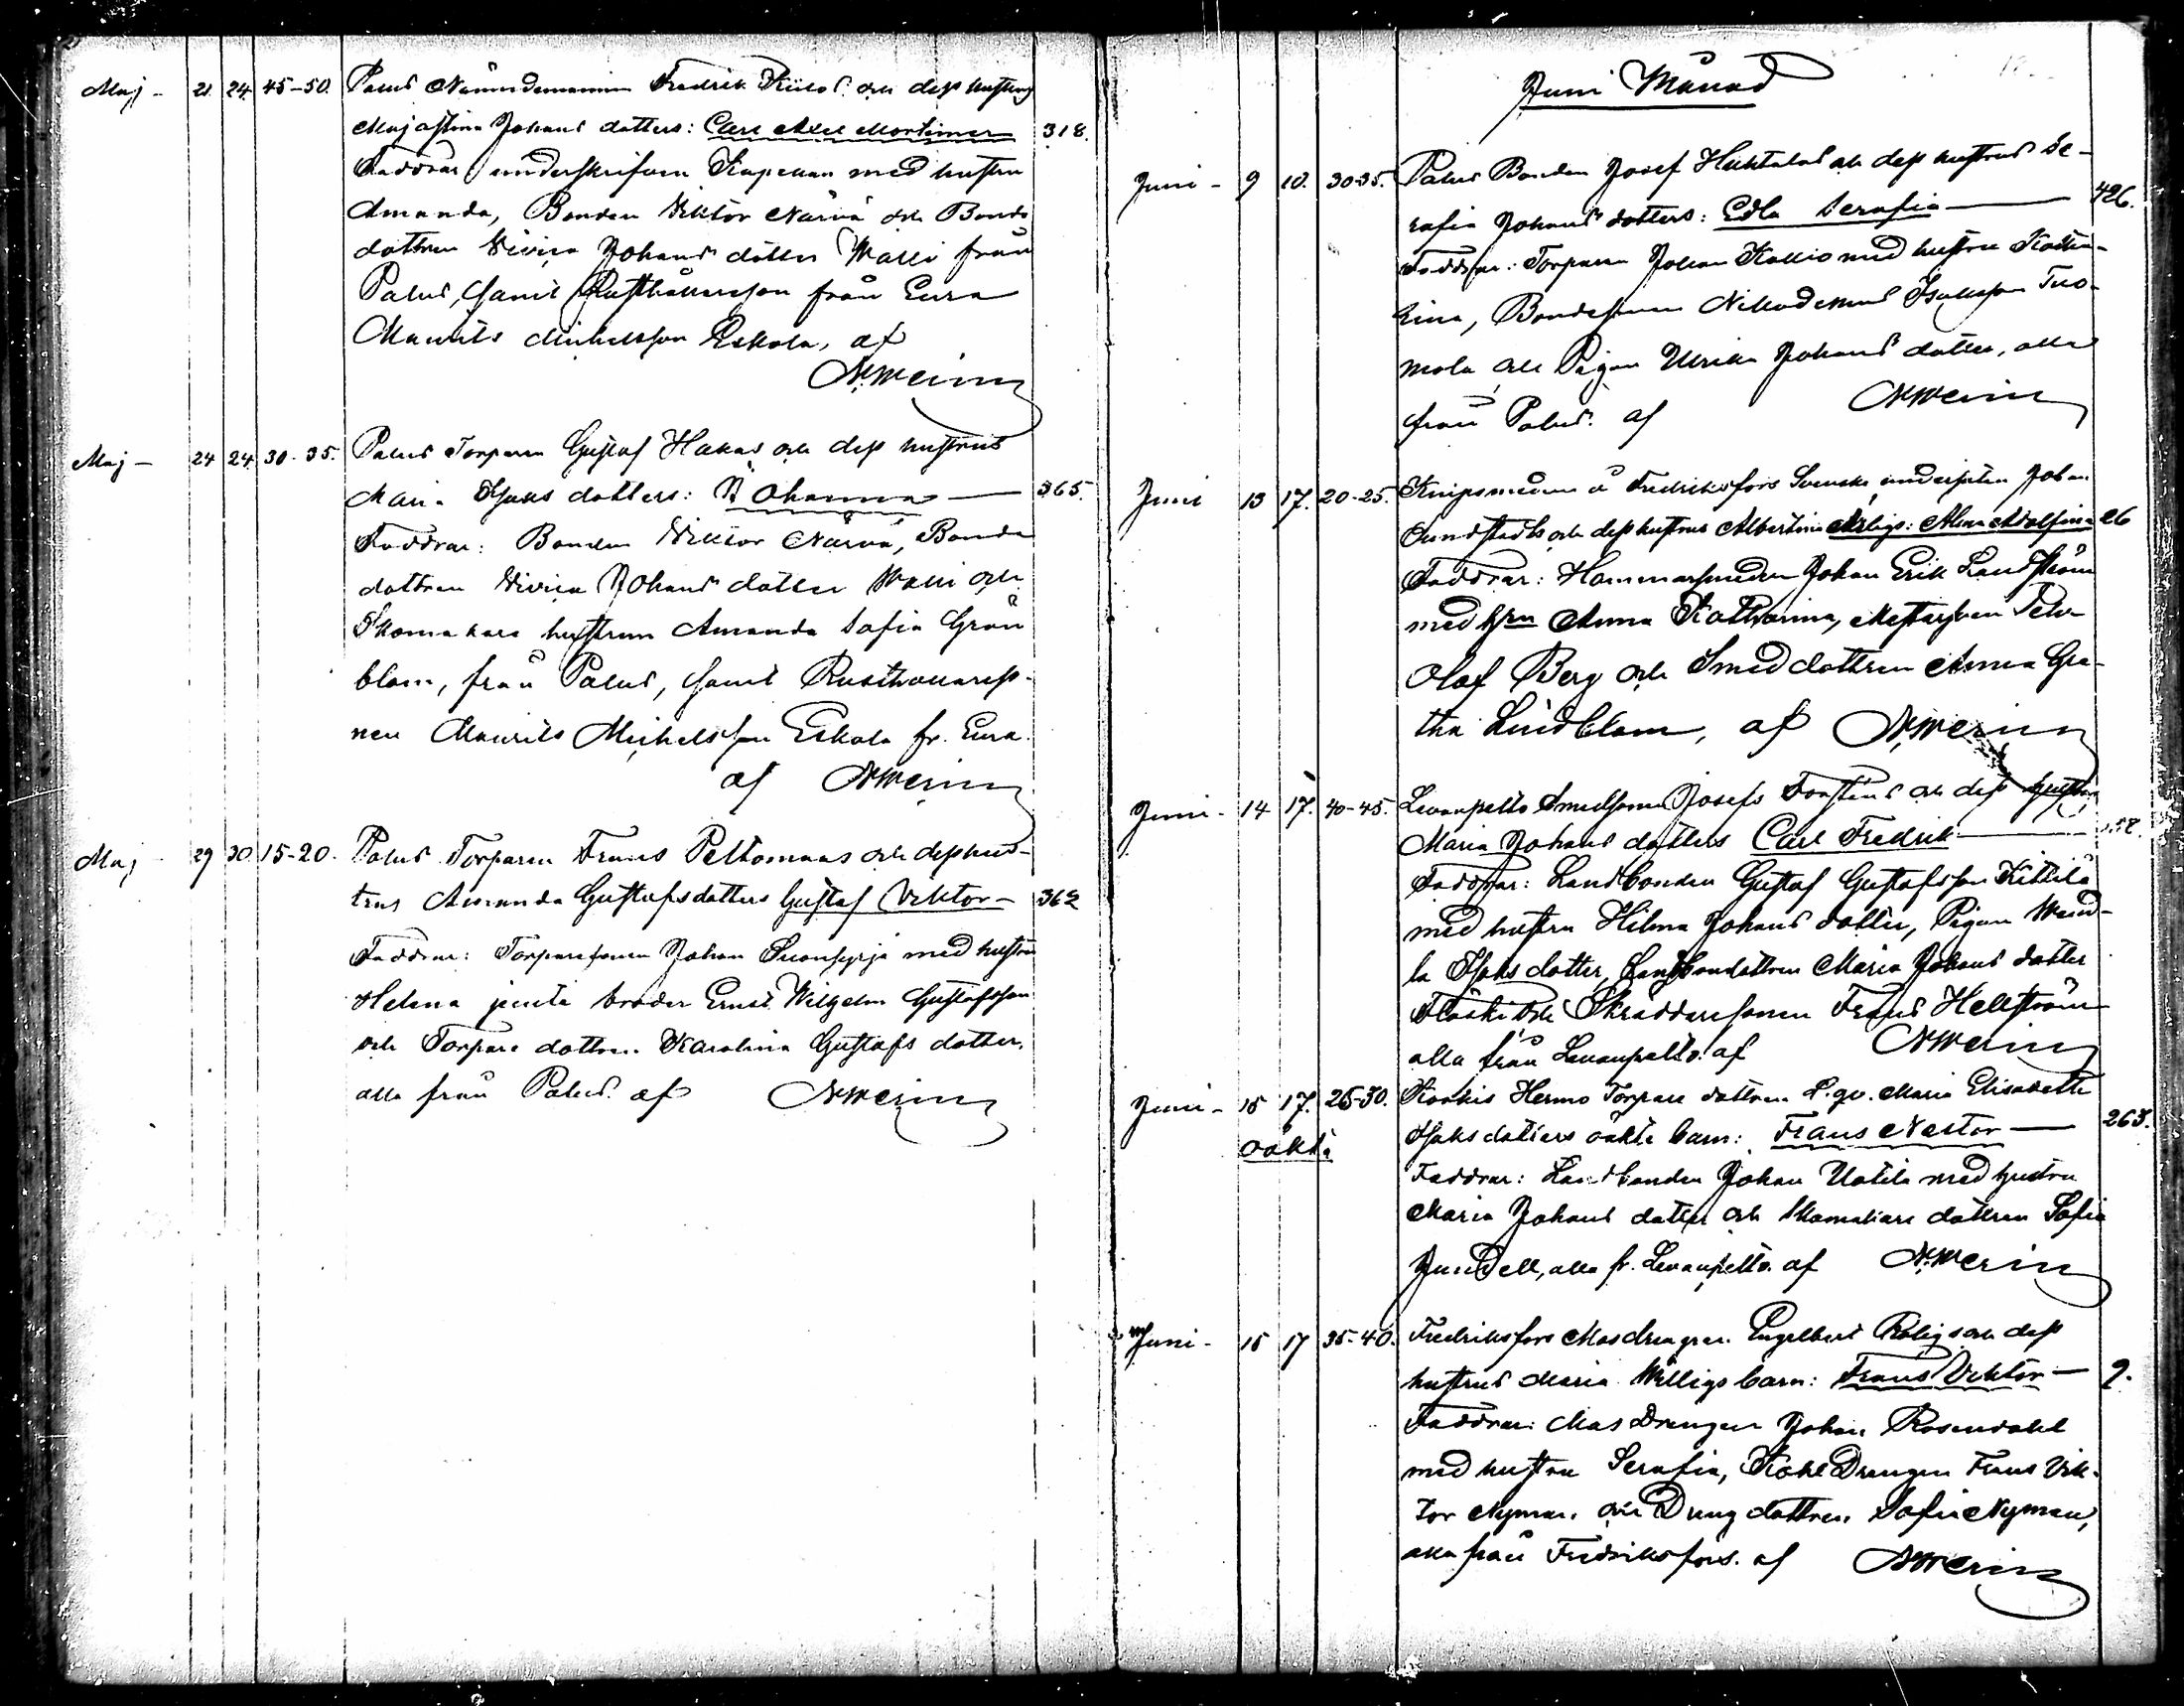 Maj - 21. 24. 45-50. Palus Nämndemannen Fredrik Kiilos och dess hustrus
Maja Stina Johans dotters: Carl Axel Mortimer 318.
Faddrar underskrifven Kapellan med hustru
Amanda, Bonden Viktor Närvä och Bonde
dottren Vivica Johans dotter Walli från
Palus, samt Rusthållaresson från Eura
Maurits Michelsson Eskola, af
Maj - 24 24 30-35. Palus Torparen Gustaf Hakas och dess hustrus
Maria Isaks dotters: Johanna — 365.
Faddrar: Bonden Viktor Närvä, Bonde
dottren Vivica Johans dotter Walli och
Skomakare hustrun Amanda Sofia Grön
blom, från Palus, samt Rusthållaresso-
nen Maurits Michelsson Eskola fr. Eura.
af
Maj - 29 30 15-20. Palus Torparen Frans Peltomaas och dess hus-
trus Amanda Gustafsdotters Gustaf Viktor - 362
Faddrar: Torparesonen Johan med hustru
Helena broder Ernst Wilhelm Gustafsson
och Torpare dottren Karolina Gustafs dotter,
alla från Palus. af
Juni Månad
Juni - 9 10. 30-35. Palus Bonden Josef Huhtalas och dess hustrus Se-
rafia Johans dotters: Edla Serafia — 426.
Faddrar: Torparen Johan Kallio med hustru Katha-
rina, Bondesonen Nikodemus Isaksson Tuo-
mola och Pigan Ulrika Johans dotter, alla
från Palus. af
Juni 13 17. 20-25. Knipsmeden å Fredriksfors Svenske undersåten Johan
Sundstedts och dess hustrus Albertina Ärligs: Alma Adolfina 26
Faddrar: Hammarsmeden Johan Erik Landström
med hru Anna Katharina, Mästaren Pehr
Olof Berg och Smed dottren Anna Gre-
tha Lindblom, af
Juni - 14 17. 40-45. Levanpelto Smedsonen Josefs Forsténs och dess hustrus
Maria Johans dotters Carl Fredrik —
Faddrar: Landbonden Gustaf Gustafsson Kittilä
med hustru Hilma Johans dotter, Pigan Wend-
la Isaks dotter, Landbondottren Maria Johans dotter
och Skräddaresonen Frans Hellström
alla från Levanpelto. af
Juni - 15 17. 25-30. Harkis Hermo Torpare dottren L. qv. Maria Elisabeth
oäkta Isaks dotters oäkta barn: Frans Nestor — 263.
Faddrar: Landbonden Johan Uotila med hustru
Maria Johans dotter och Skomakare dottren Sofia
Jundell, alla fr. Levanpelto. af
Juni - 15 17 35-40. Fredriksfors Masdrengen Engelbert Roligs och dess
hustrus Maria Willigs barn: Frans Viktor — 9.
Faddrar: Mas Drengen Johan Rosendahl
med hustru Serafia, Kohl Drengen Frans Vik-
tor Nyman och Dreng dottren Sofia Nyman,
alla från Fredriksfors. af